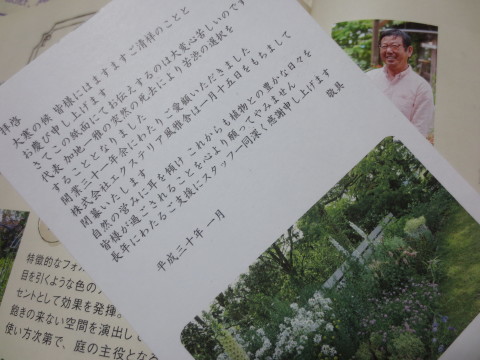 拝啓
大寒の候 皆様にはますますご清祥のことと
お慶び申し上げます
さてこの紙面にてお伝えするのは大変心苦しいのですが
代表 加地一雅の突然の死去により苦渋の選択を
することとなりました
開業三十一年余にわたりご愛顧いただきました
株式会社エクステリア風雅舎は一月十五日をもちまして
閉幕いたします
自然の営みに耳を傾け これからも植物との豊かな日々を
皆様が過ごされることを心より願ってやみません
長年にわたるご支援にスタッフ一同深く感謝申し上げます
敬具
平成三十年一月
特徴的なフォル
目を引くような色の
セントとして効果を発揮。
飽きの来ない空間を演出し
使い方次第で、庭の主役となる